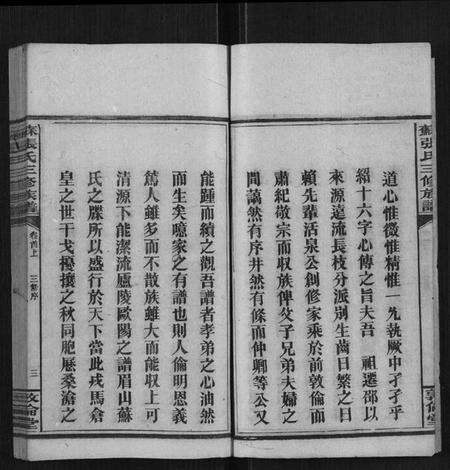 蘇張氏三修族譜
敦倫堂
道心惟微惟精惟一允執厥中孜孜乎
紹十六字心傳之旨夫吾 祖遷邵以
來源遠流長枝分派別生齒日繁之日
賴先輩活泉公創修家乘於前敦倫而
肅紀敬宗而收族俾父子兄弟夫婦之
間藹然有序井然有條而仲卿等公又
能踵而續之觀吾譜者孝弟之心油然
而生矣噫家之有譜也則人倫明恩義
篤人雖多而不散族雖大而能收上可
清源下能潔流廬陵歐陽之譜眉山蘇
氏之牒所以盛行於天下當此戎馬倉
皇之世干戈擾攘之秋同胞歷桑滄之
蘇張氏三修族譜
卷首上
三修序
三
敦倫堂